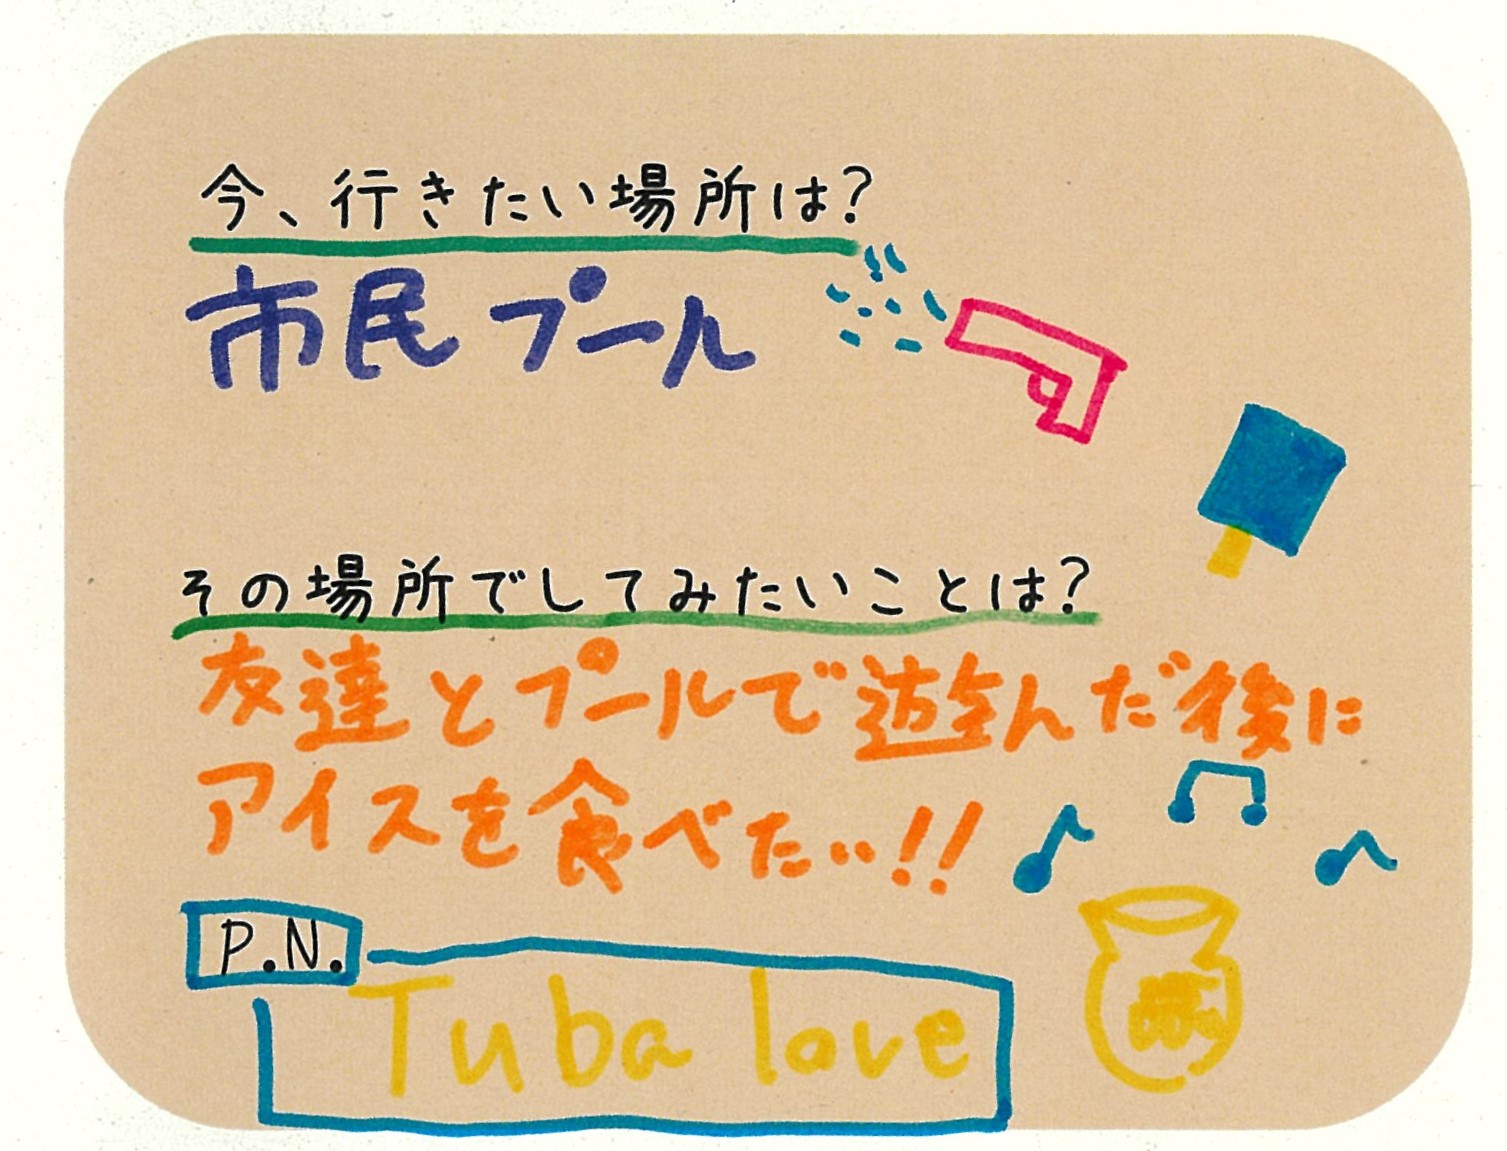 今、行きたい場所は?
市民プール
その場所でしてみたいことは?
友達とプールで遊んだ後に
アイスを食べたい!!
P.N.
Tuba love